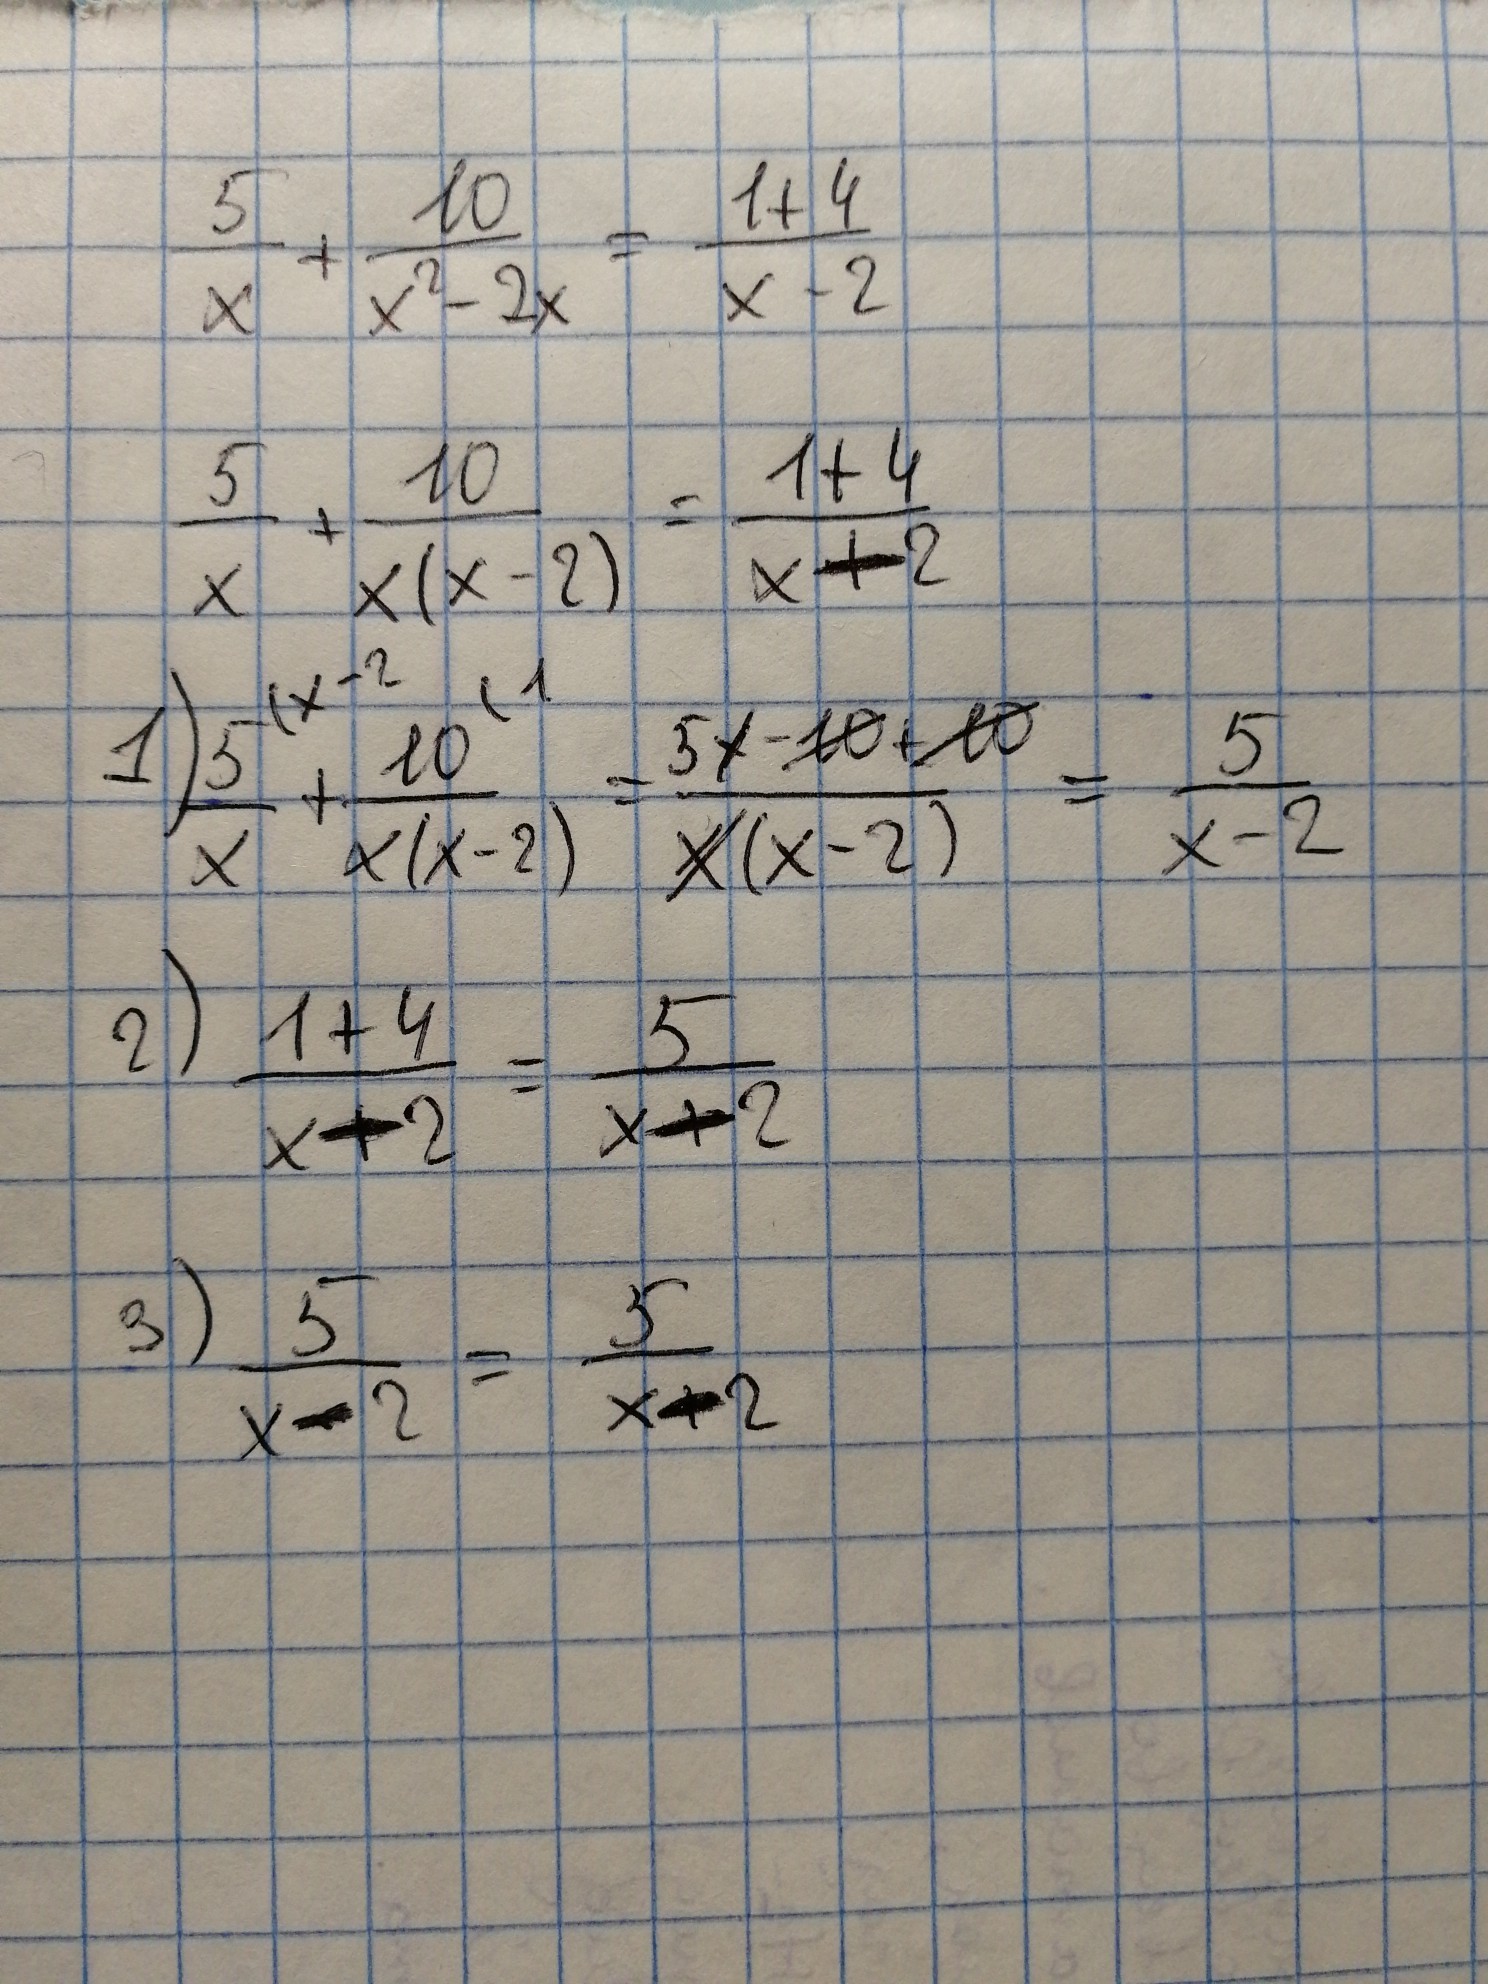 5/x + 10/(x² - 2x) = (1+4)/(x - 2)
5/x + 10/(x(x-2)) = (1+4)/(x - 2)
1) 5(x-2/x + 10(1/(x(x-2)) = (5x-10+10)/(x(x-2)) = 5/(x-2)
2) (1+4)/(x-2) = 5/(x-2)
3) 5/(x-2) = 5/(x-2)